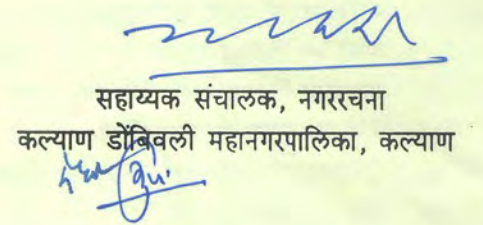 सहाय्यक संचालक, नगररचना
कल्याण डोंबिवली महानगरपालिका, कल्याण